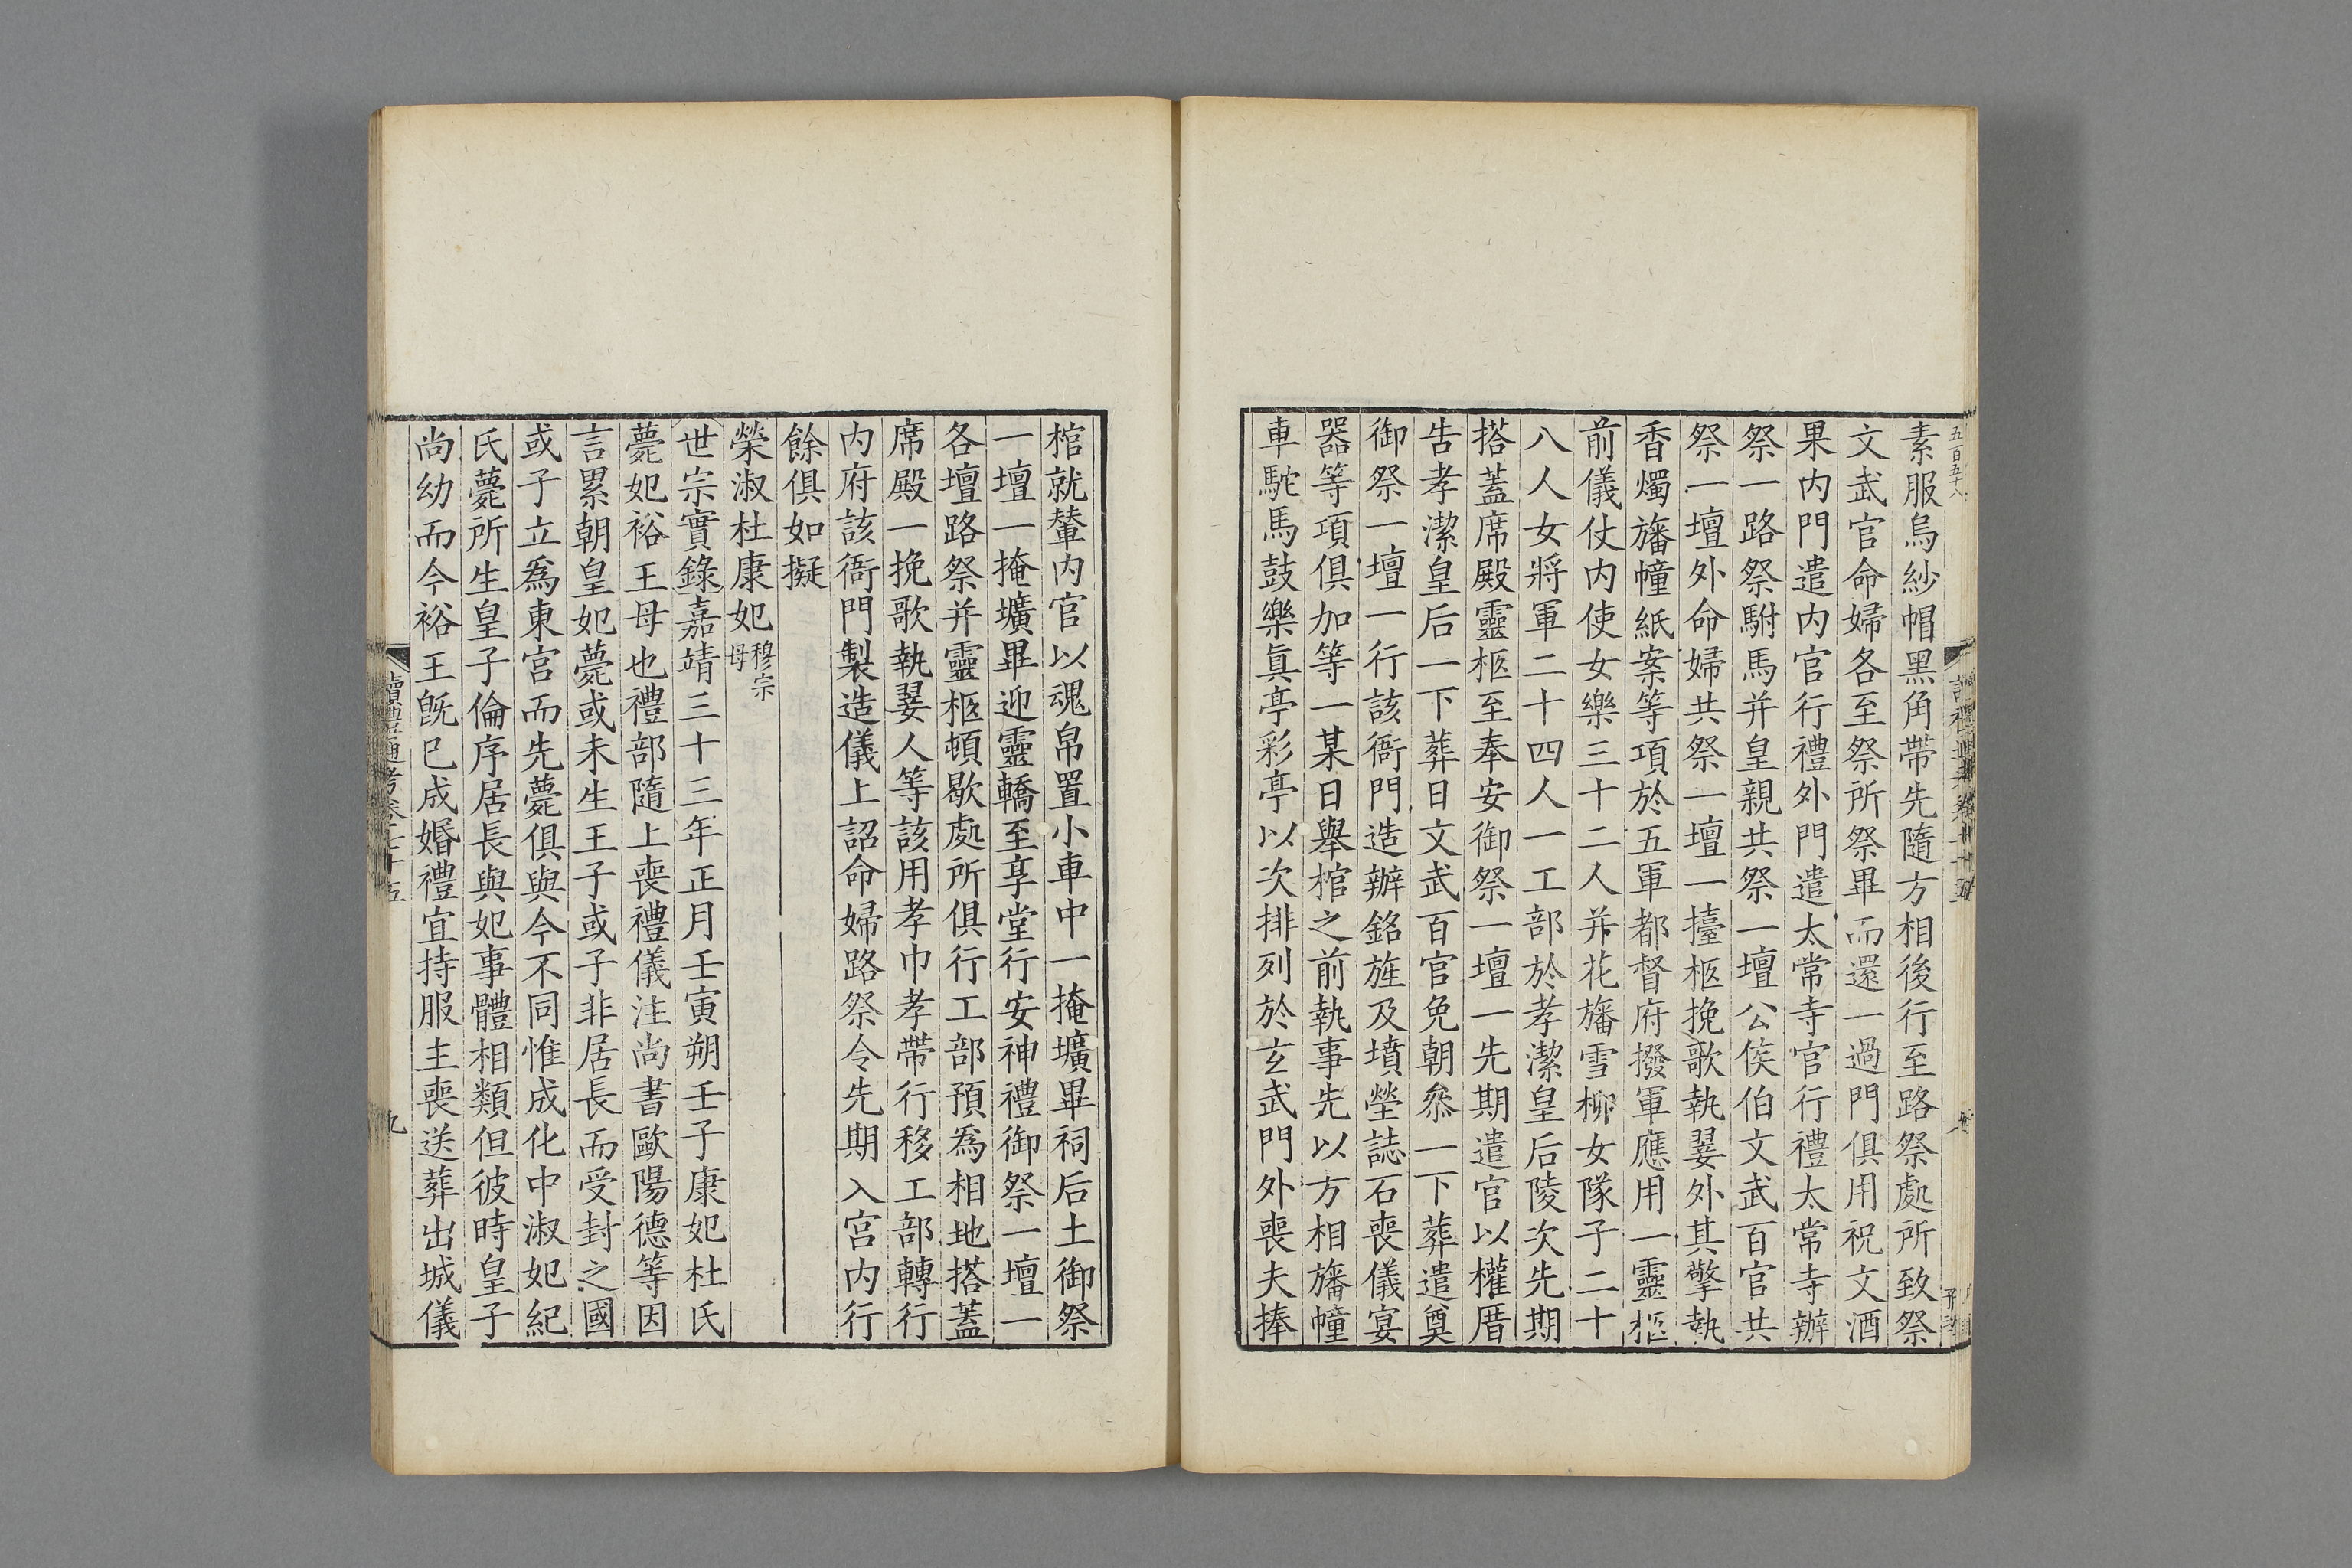 五百五十八
素服烏紗帽黑角帶先隨方相後行至路祭處所致祭
文武官命婦各至祭所祭畢而還一過門俱用祝文酒
果内門遣内官行禮外門遣太常寺官行禮太常寺辦
祭一路祭駙馬并皇親共祭一壇公侯伯文武百官共
祭一壇外命婦共祭一壇一擡柩挽歌執翣外其擎執
香燭旛幢紙案等項於五軍都督府撥軍應用一靈柩
前儀仗内使女樂三十二人并花旛雪柳女隊子二十
八人女將軍二十四人一工部於孝潔皇后陵次先期
搭蓋席殿靈柩至奉安御祭一壇一先期遣官以權厝
告孝潔皇后一下葬日文武百官免朝叅一下葬遣奠
御祭一壇一行該衙門造辦銘旌及墳塋誌石喪儀宴
器等項俱加等一某日舉棺之前執事先以方相旛幢
車駝馬鼓樂眞亭彩亭以次排列於玄武門外喪夫捧
棺就輦内官以魂帛置小車中一掩壙畢祠后土御祭
一壇一掩壙畢迎靈轎至享堂行安神禮御祭一壇一
各壇路祭并靈柩頓歇處所俱行工部預爲相地搭蓋
席殿一挽歌執翣人等該用孝巾孝帶行移工部轉行
内府該衙門製造儀上詔命婦路祭令先期入宫内行
餘俱如擬
榮淑杜康妃穆宗母
世宗實錄嘉靖三十三年正月壬寅朔壬子康妃杜氏
薨妃裕王母也禮部隨上喪禮儀注尚書歐陽德等因
言累朝皇妃薨或未生王子或子非居長而受封之國
或子立爲東宫而先薨俱與今不同惟成化中淑妃紀
氏薨所生皇子倫序居長與妃事體相類但彼時皇子
尚幼而今裕王旣已成婚禮宜持服主喪送葬出城儀
讀禮通考卷二十五
九